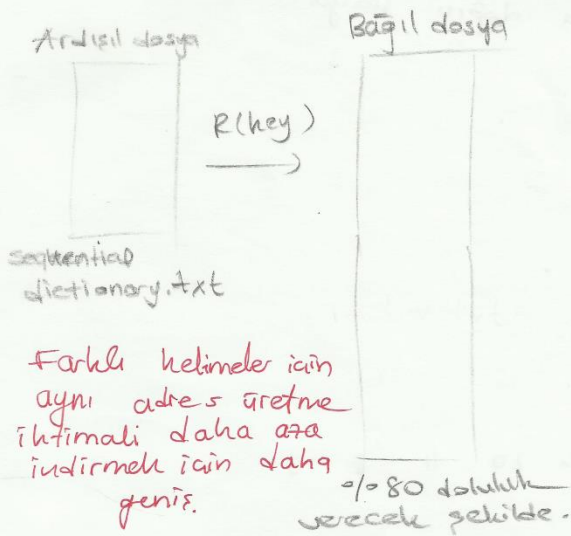 Ardışıl dosya
Bağıl dosya
R(key)
sequential
dictionary.txt
Farklı kelimeler için
aynı adres üretme
ihtimali daha aza
indirmek için daha
geniş.
%80 doluluk
verecek şekilde.